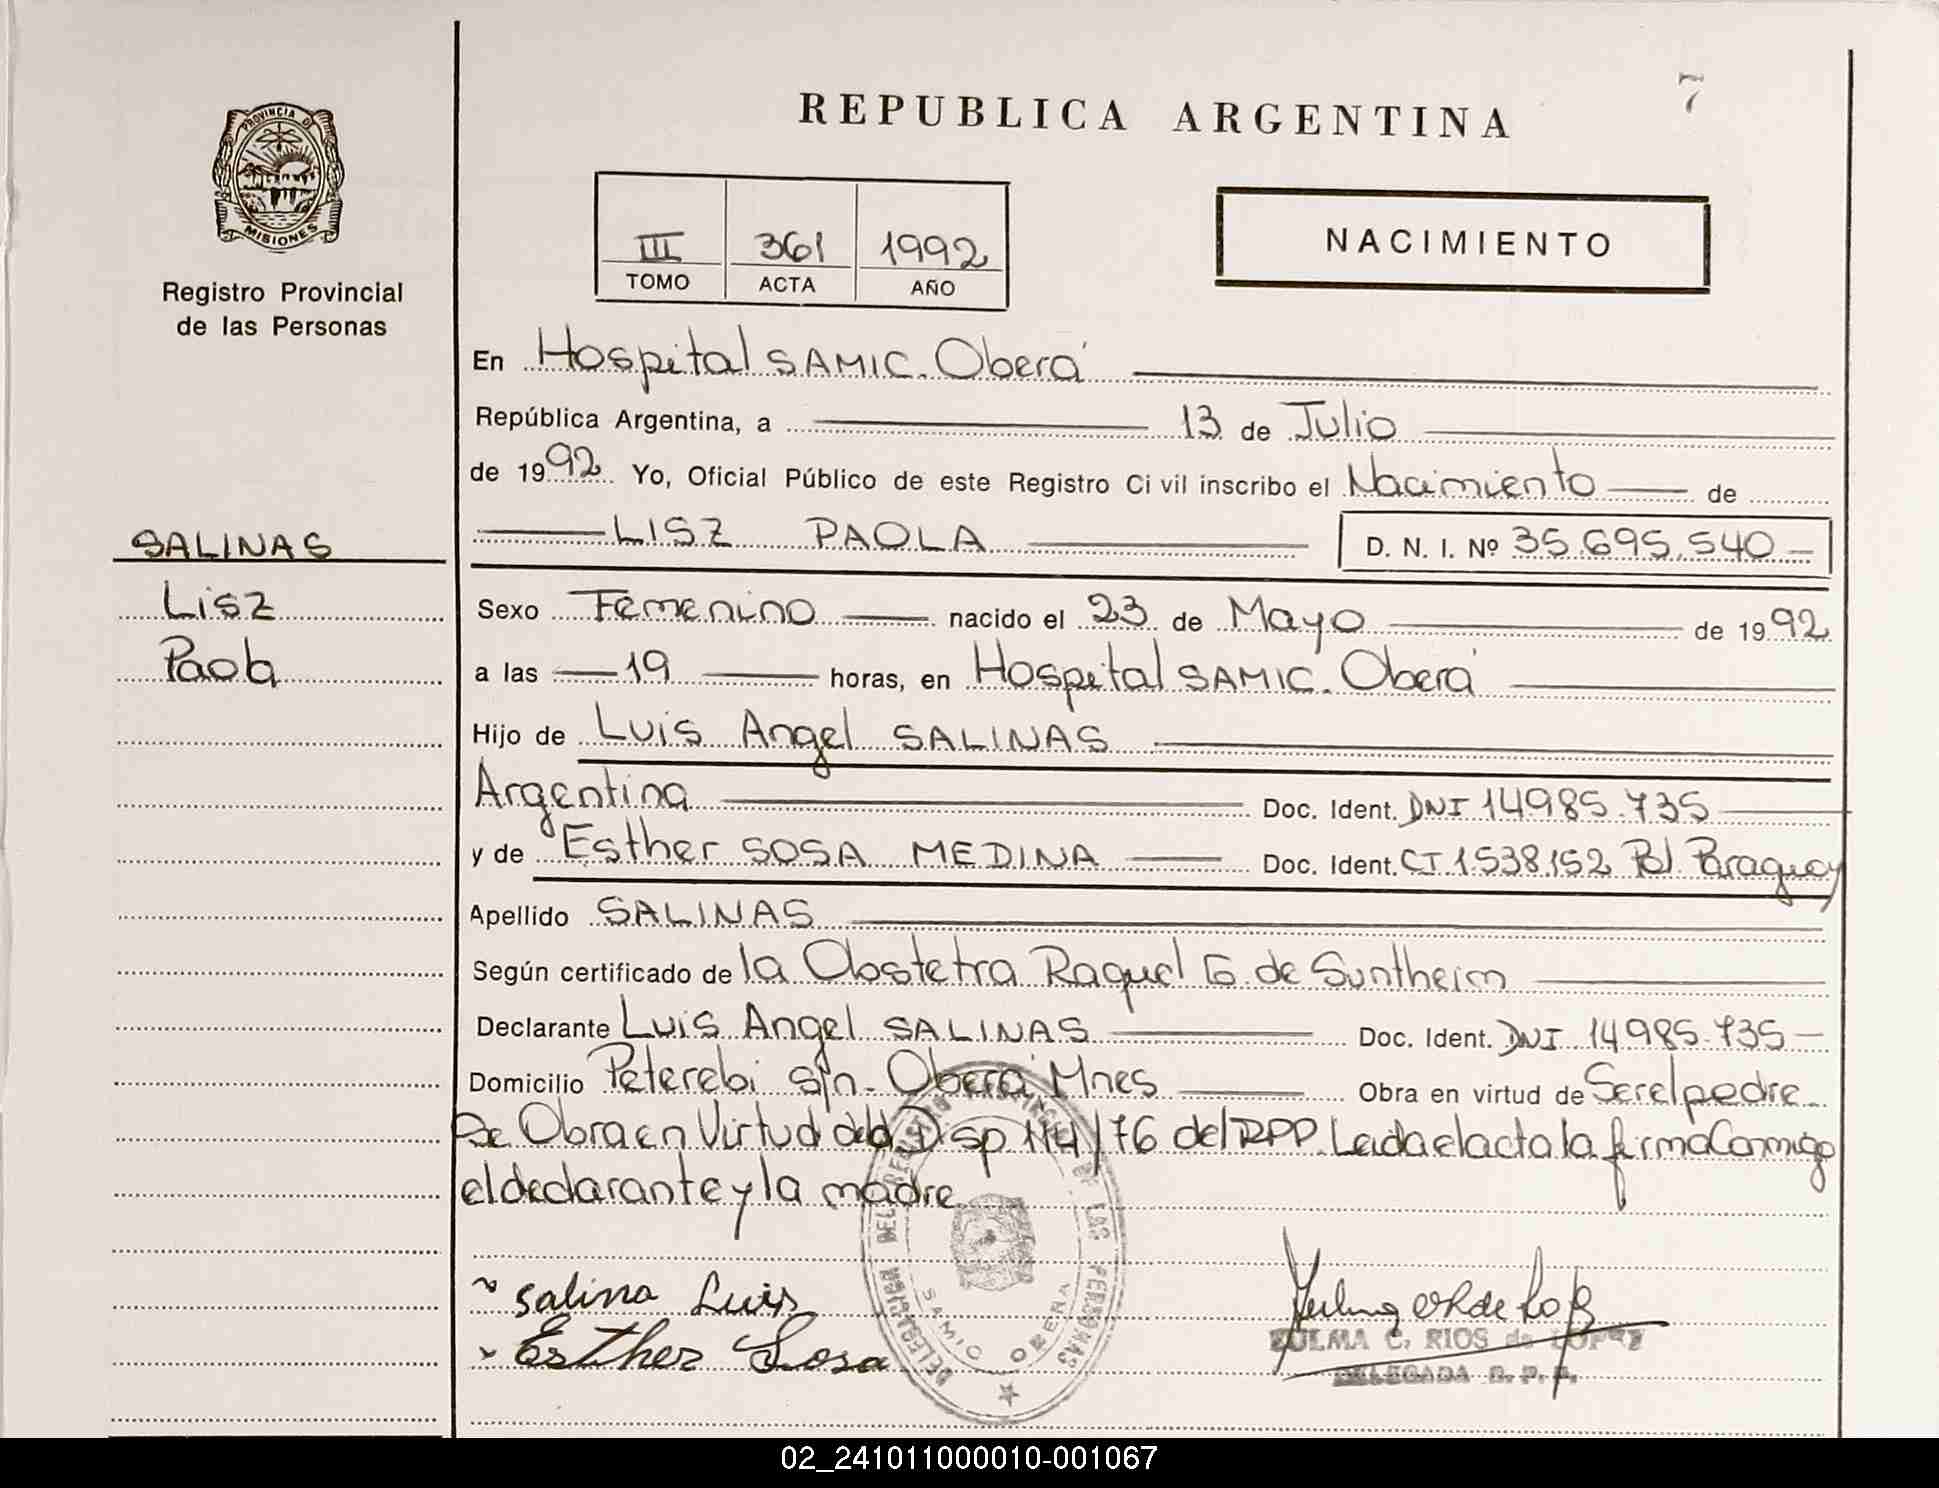 7
REPUBLICA ARGENTINA
PROVINCIA DE
MISIONES
Registro Provincial
de las Personas
III 361 1992
TOMO ACTA AÑO
NACIMIENTO
En Hospital SAMIC. Oberá
República Argentina, a 13 de Julio
de 1992 Yo, Oficial Público de este Registro Civil inscribo el Nacimiento de
LISZ PAOLA D. N. I. Nº 35.695.540
SALINAS
Lisz
Paola
Sexo Femenino nacido el 23 de Mayo de 1992
a las 19 horas, en Hospital SAMIC. Oberá
Hijo de Luis Angel SALINAS
Argentina Doc. Ident. DNI 14985.735
y de Esther SOSA MEDINA Doc. Ident. CI 1.538.152 Pol. Paraguay
Apellido SALINAS
Según certificado de la Obstetra Raquel G. de Suntheim
Declarante Luis Angel SALINAS Doc. Ident. DNI 14985.735
Domicilio Peterebi s/n. Oberá Mnes Obra en virtud de Ser el padre
Se Obra en Virtud del Disp 114/76 del RPP. Leida el acta la firma Conmigo
el declarante y la madre
DELEGACION DEL REGISTRO PROVINCIAL DE LAS PERSONAS
SAMIC OBERA
Salina Luis
Esther Sosa
ZULMA C. RIOS de LOPEZ
DELEGADA R. P. P.
02_241011000010-001067